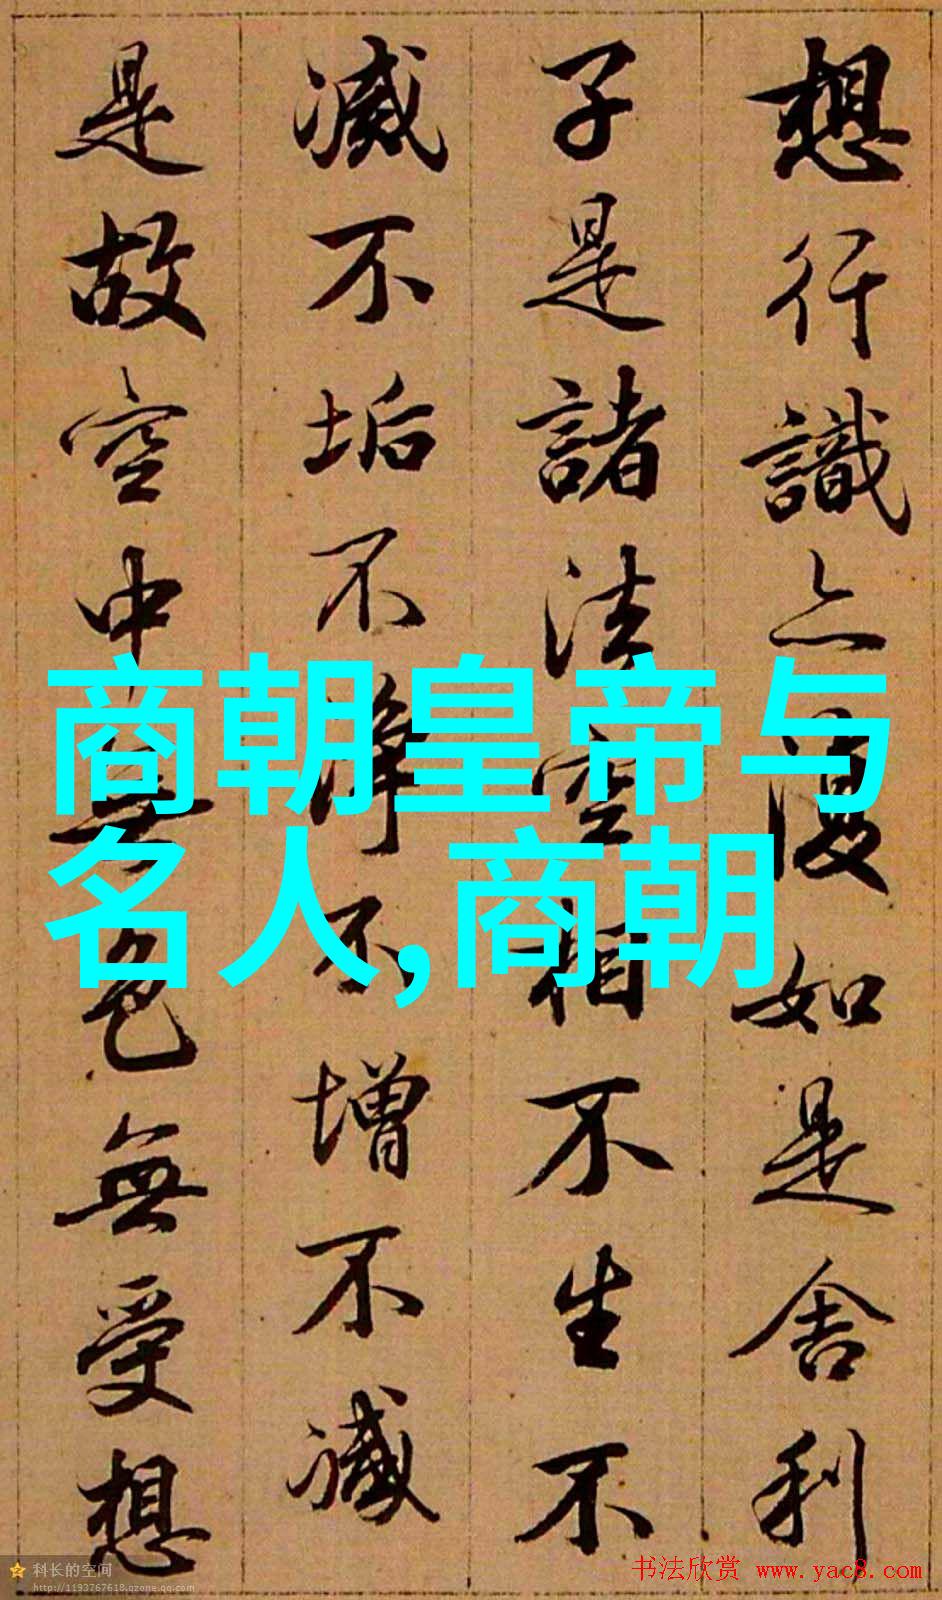 想行識亦復如是舍利
子是諸法空相不生不
滅不垢不淨不增不減
是故空中無色無受想
商朝皇帝与
名人,商朝
科长的空间
http://1193767618.qzone.qq.com
书法欣赏 www.yac8.com